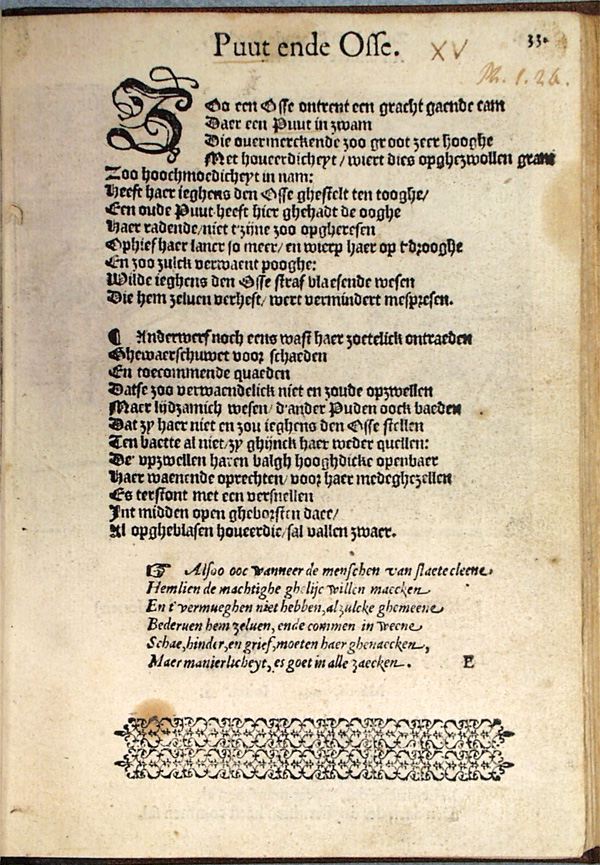 Puut ende Osse.
XV
33.
Ph. 1. 26.
Zoo een Osse ontrent een gracht gaende cam
Daer een Puut in zwam
Die ouermerckende zoo groot zeer hooghe
Met houeerdicheyt / wiert dies opghezwollen gram
Zoo hoochmoedicheyt in nam:
Heeft haer ieghens den Osse ghestelt ten tooghe/
Een oude Puut heeft hier ghehadt de ooghe
Haer radende/niet t'zijne zoo opgheresen
Ophief haer lancx so meer/en wierp haer op t'drooghe
En zoo zulck verwaent pooghe:
Wilde ieghens den Osse straf blaesende wesen
Die hem zeluen verhest/ wert vermindert mespresen.
¶ Anderwerf noch eens wast haer zoetelick ontraeden
Ghewaerschuwet voor schaeden
En toecommende quaeden
Datse zoo verwaendelick niet en zoude opzwellen
Maer lijdzamich wesen/ d'ander Puden oock baeden
Dat zy haer niet en zou ieghens den Osse stellen
Ten baette al niet/zy ghijnck haer weder quellen:
De vpzwellen haren balgh hooghdicke openbaer
Haer waenende oprechten/ voor haer medeghezellen
Es terstont met een versnellen
Int midden open gheborsten daer/
Al opgheblasen houerdie/sal vallen zwaer.
☞ Alsoo ooc wanneer de menschen van staete cleene,
Hemlien de machtighe ghelijc willen maecken
En t'vermueghen niet hebben, alzulcke ghemeene
Bederuen hem zeluen, ende commen in weene
Schae, hinder, en grief, moeten haer ghenaecken,
Maer manierlicheyt, es goet in alle zaecken. E